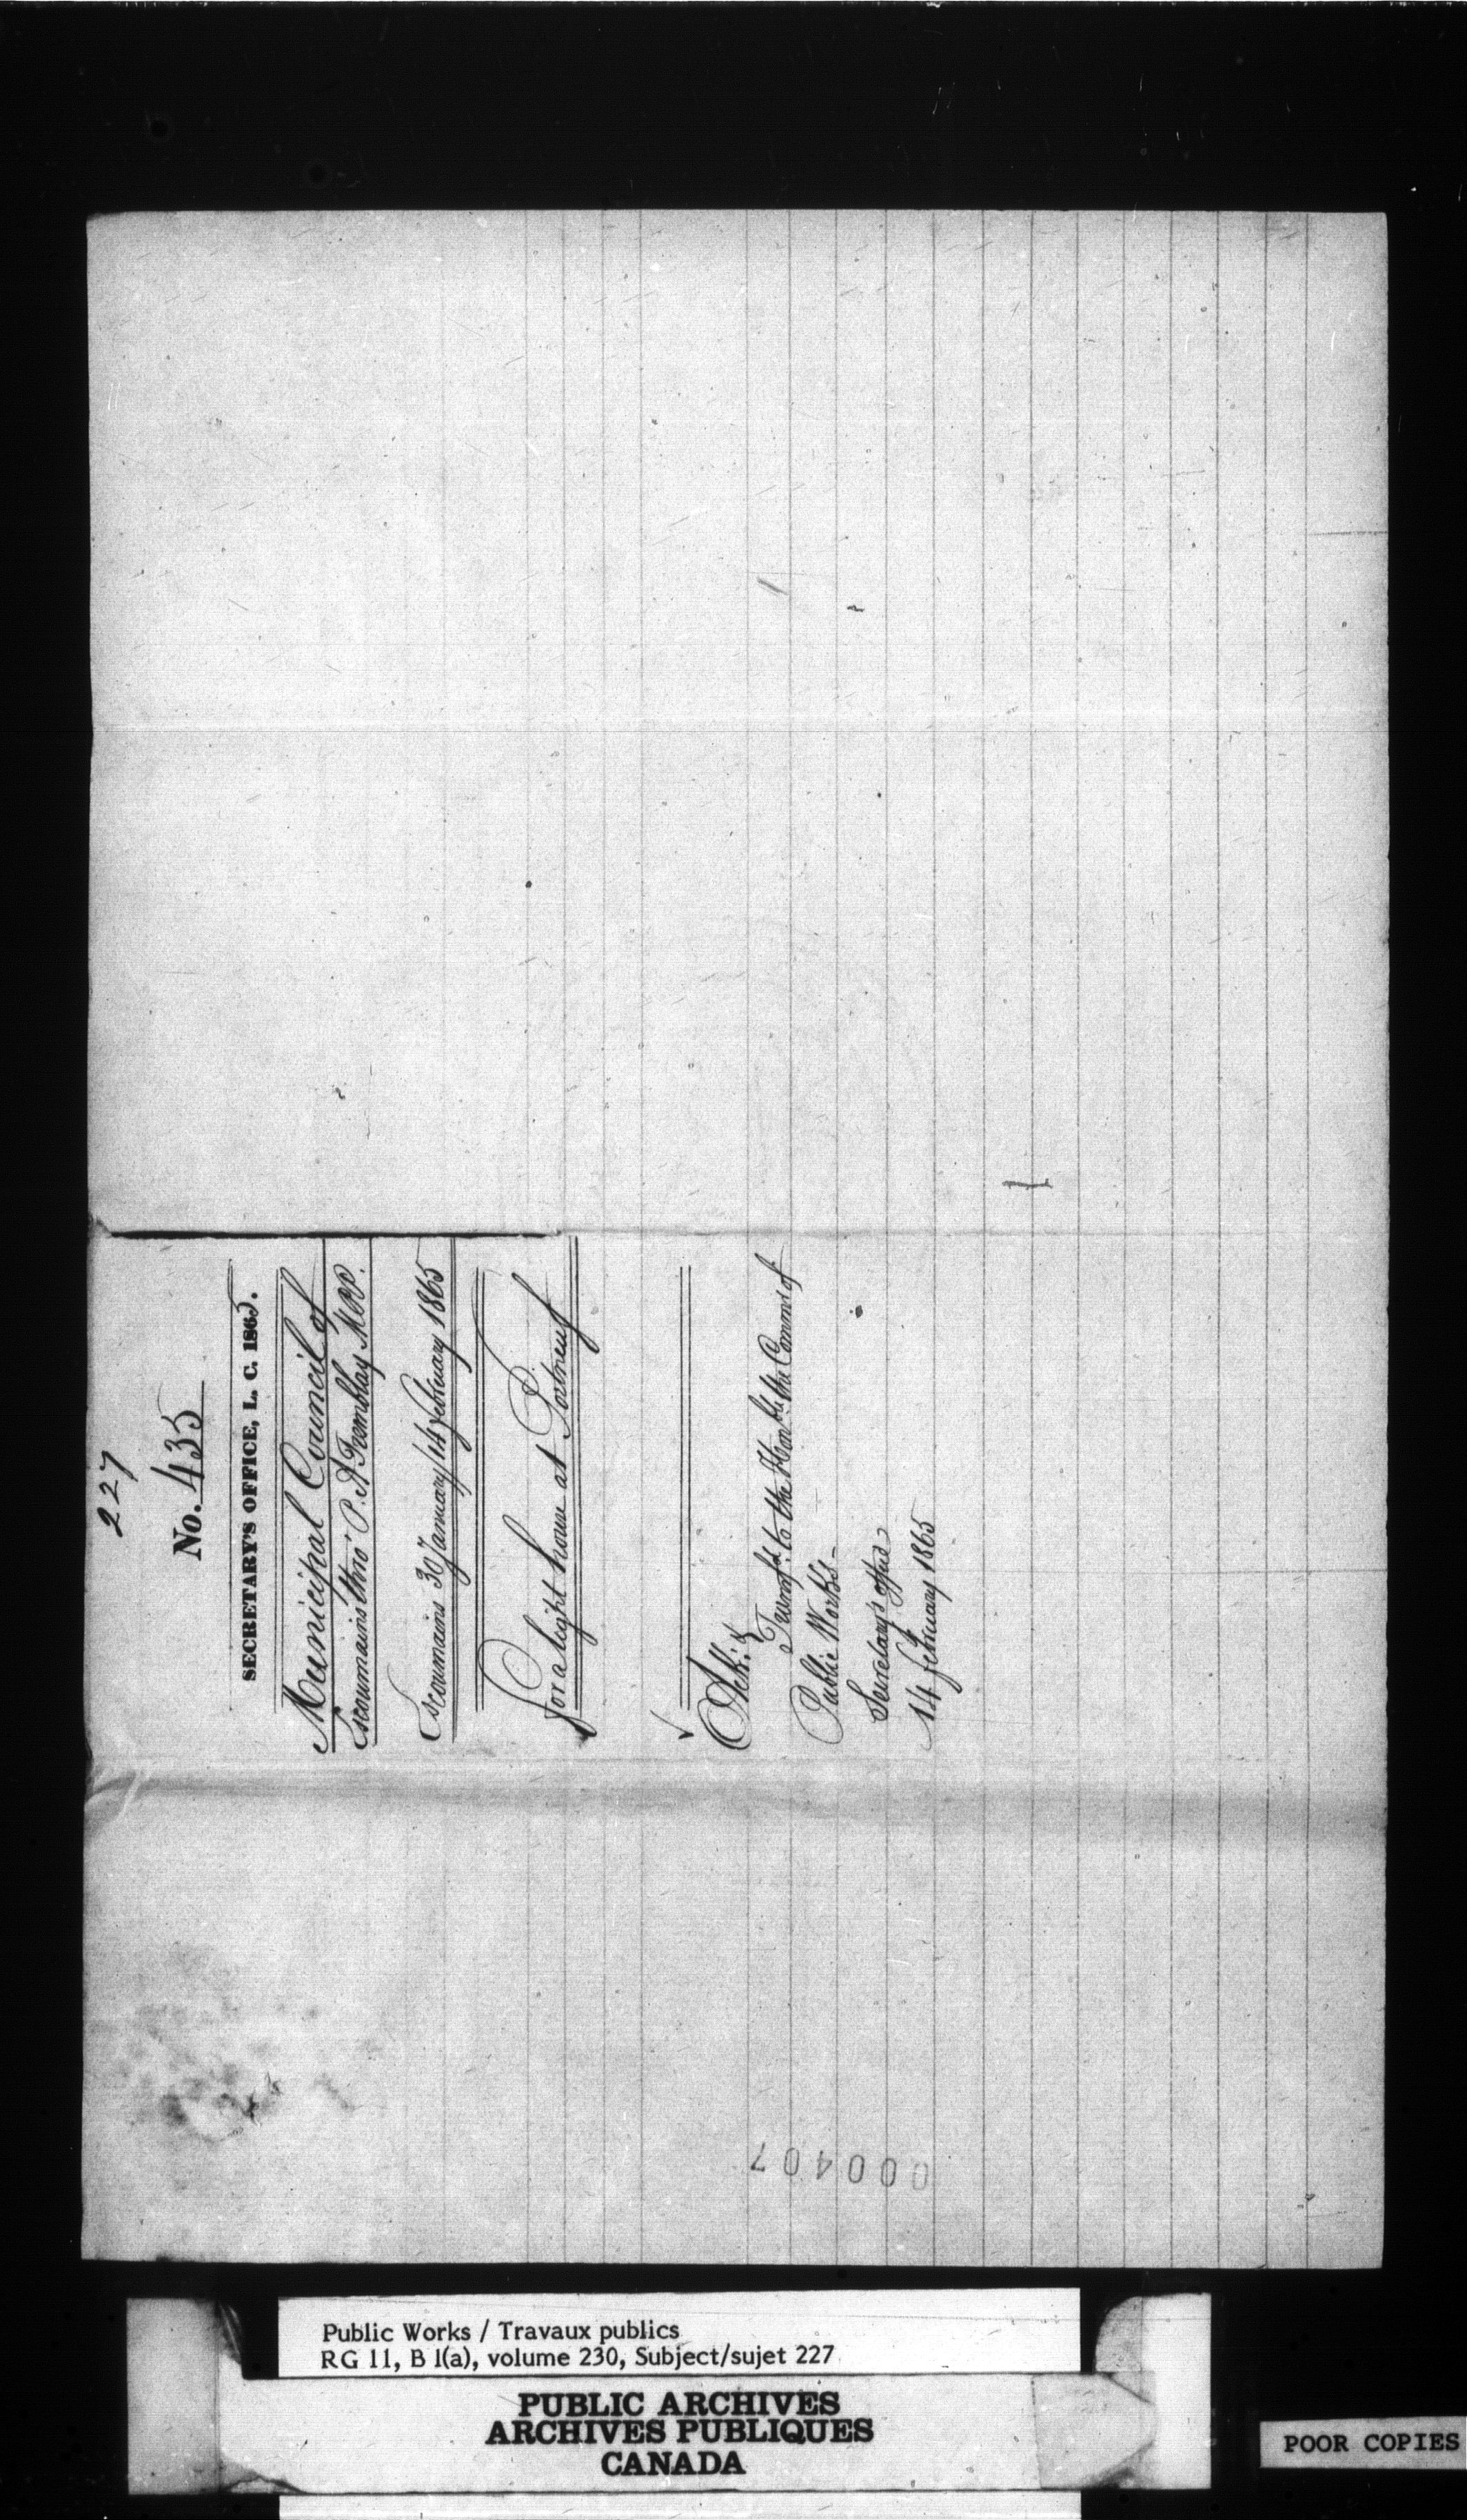 227
No. 435
SECRETARY'S OFFICE, L. C. 1865.
Municipal Council of
Escoumains thro' P. A Tremblay M.P.P.
Escoumains 30 January/14 February 1865
For a light house at Portneuf
Ack: &
Transfd. to the Honble. the Commr of
Public Works-
Secretary's office
14 february 1865
000407
Public Works / Travaux publics
RG 11, B 1(a), volume 230, Subject/sujet 227
PUBLIC ARCHIVES
ARCHIVES PUBLIQUES
CANADA
POOR COPIES